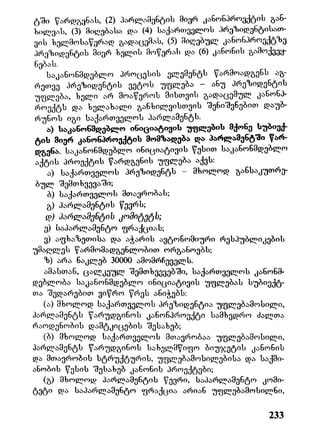 ტში წარდგენას, (2) პარლამენტის მიერ კანონპროექტის გან-
ხილვას, (3) მიღებასა და (4) საქართველოს პრეზიდენტისათ-
ვის ხელმოსაწერად გადაცემას, (5) მიღებულ კანონპროექტზე
პრეზიდენტის მიერ ხელის მოწერას და (6) კანონის გამოქვეყ-
ნებას.
საკანონმდებლო პროცესის ელემენტს წარმოადგენს აგ-
რეთვე პრეზიდენტის ვეტოს უფლება – ანუ პრეზიდენტის
უფლება, ხელი არ მოაწეროს მისთვის გადაცემულ კანონპ-
როექტს და ხელახალი განხილვისთვის შენიშვნებით დაუბ-
რუნოს იგი საქართველოს პარლამენტს.
ა) საკანონმდებლო ინიციატივის უფლების მქონე სუბიექ-
ტის მიერ კანონპროექტის მომზადება და პარლამენტში წარ-
დგენა. საკანონმდებლო ინიციატივის წესით საკანონმდებლო
აქტის პროექტის წარდგენის უფლება აქვს:
ა) საქართველოს პრეზიდენტს – მხოლოდ განსაკუთრე-
ბულ შემთხვევაში;
ბ) საქართველოს მთავრობას;
გ) პარლამენტის წევრს;
დ) პარლამენტის კომიტეტს;
ე) საპარლამენტო ფრაქციას;
ვ) აფხაზეთისა და აჭარის ავტონომიური რესპუბლიკების
უმაღლეს წარმომადგენლობით ორგანოებს;
ზ) არა ნაკლებ 30000 ამომრჩეველს.
ამასთან, ცალკეულ შემთხვევებში, საქართველოს კანონმ-
დებლობა საკანონმდებლო ინიციატივის უფლებას სუბიექტ-
თა შედარებით ვიწრო წრეს ანიჭებს:
(ა) მხოლოდ საქართველოს პრეზიდენტია უფლებამოსილი,
პარლამენტს წარუდგინოს კანონპროექტი სამხედრო ძალთა
რაოდენობის დამტკიცების შესახებ;
(ბ) მხოლოდ საქართველოს მთავრობაა უფლებამოსილი,
პარლამენტს წარუდგინოს სახელმწიფო ბიუჯეტის კანონის
და მთავრობის სტრუქტურის, უფლებამოსილებისა და საქმი-
ანობის წესის შესახებ კანონის პროექტები;
(გ) მხოლოდ პარლამენტის წევრი, საპარლამენტო კომი-
ტეტი და საპარლამენტო ფრაქცია არიან უფლებამოსილნი,
233